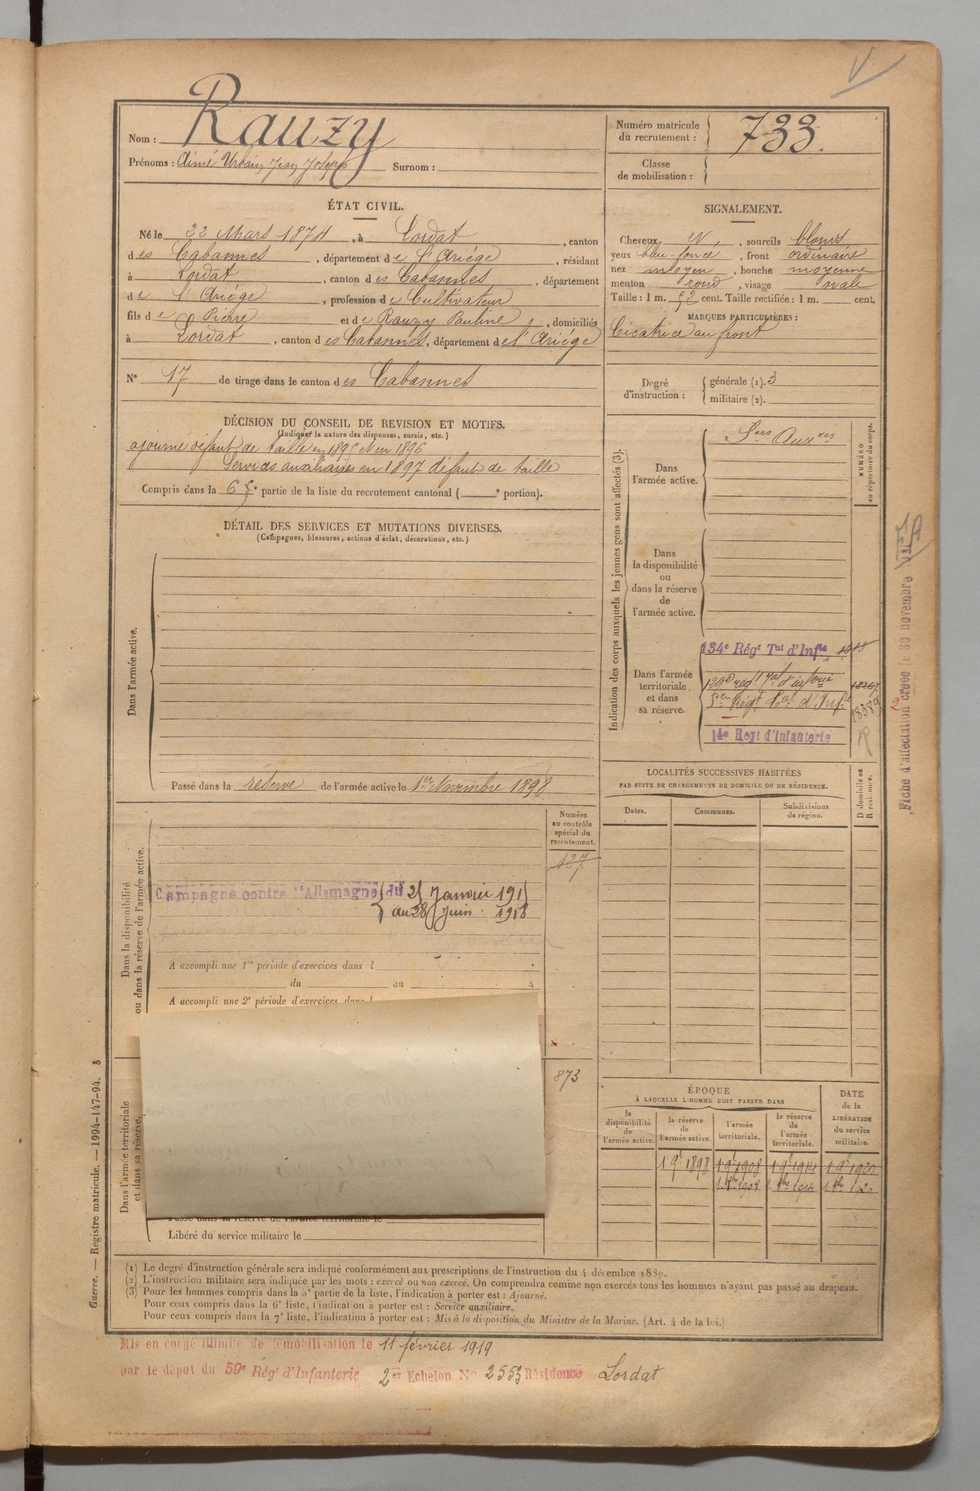 Nom : Rauzy
Prénoms : Aimé Urbain Jean Joseph Surnom :
Numéro matricule du recrutement : 733.
Classe de mobilisation :
ÉTAT CIVIL.
Né le 22 Mars 1874, à Lordat, canton
des Cabannes, département de l'Ariége, résidant
à Lordat, canton des Cabannes, département
de l'Ariége, profession de Cultivateur
fils de Pierre et de Rauzy Pauline, domiciliés
à Lordat, canton des Cabannes, département de l'Ariége
N° 17 de tirage dans le canton des Cabannes
SIGNALEMENT.
Cheveux et, sourcils blonds
yeux bleu-foncé, front ordinaire
nez moyen, bouche moyenne
menton rond, visage ovale
Taille : 1 m. cent. Taille rectifiée : 1 m. cent.
MARQUES PARTICULIÈRES :
Cicatrice au front
Degré d'instruction : générale (1). 3
militaire (2).
DÉCISION DU CONSEIL DE REVISION ET MOTIFS.
(Indiquer la nature des dispenses, sursis, etc.)
ajourné défaut de taille en 1895 et en 1896
Services auxiliaires en 1897 défaut de taille
Compris dans la 6e partie de la liste du recrutement cantonal ( e portion).
DÉTAIL DES SERVICES ET MUTATIONS DIVERSES.
(Campagnes, blessures, actions d'éclat, décorations, etc.)
Dans l'armée active.
Passé dans la réserve de l'armée active le 1er Novembre 1898
Indication des corps auxquels les jeunes gens sont affectés (3).
NUMÉRO au répertoire du corps.
Dans l'armée active.
Sces Auxres
Dans la disponibilité ou dans la réserve de l'armée active.
Dans l'armée territoriale et dans sa réserve.
134e Régt Tal d'Infie
14e Regt d'Infanterie
Fiche d'affectation créée le 30 novembre
LOCALITÉS SUCCESSIVES HABITÉES
PAR SUITE DE CHANGEMENTS DE DOMICILE OU DE RÉSIDENCE.
Dates.
Communes.
Subdivisions de région.
D domicile ou R résidence.
Dans la disponibilité ou dans la réserve de l'armée active.
Numéro au contrôle spécial du recrutement.
127
Campagne contre l'Allemagne du 25 Janvier 191
au 28 Juin 1918
A accompli une 1re période d'exercices dans l
du au
A accompli une 2e période d'exercices dans l
873
Dans l'armée territoriale et dans sa réserve.
Passé dans la réserve de l'armée territoriale le
Libéré du service militaire le
ÉPOQUE
À LAQUELLE L'HOMME DOIT PASSER DANS
la disponibilité de l'armée active.
la réserve de l'armée active.
l'armée territoriale.
la réserve de l'armée territoriale.
DATE de la LIBÉRATION du service militaire.
1 9e 1898
1 9e 1908
1 9e 1914
1 9e 1920
(1) Le degré d'instruction générale sera indiqué conformément aux prescriptions de l'instruction du 4 décembre 1889.
(2) L'instruction militaire sera indiquée par les mots : exercé ou non exercé. On comprendra comme non exercés tous les hommes n'ayant pas passé au drapeau.
(3) Pour les hommes compris dans la 5e partie de la liste, l'indication à porter est : Ajourné.
Pour ceux compris dans la 6e liste, l'indication à porter est : Service auxiliaire.
Pour ceux compris dans la 7e liste, l'indication à porter est : Mis à la disposition du Ministre de la Marine. (Art. 4 de la loi.)
Guerre. — Registre matricule. — 1994-147-94.
Mis en congé illimité de démobilisation le 11 février 1919
par le dépôt du 59e Régt d'Infanterie 2er Echelon No 2553 Résidence Lordat